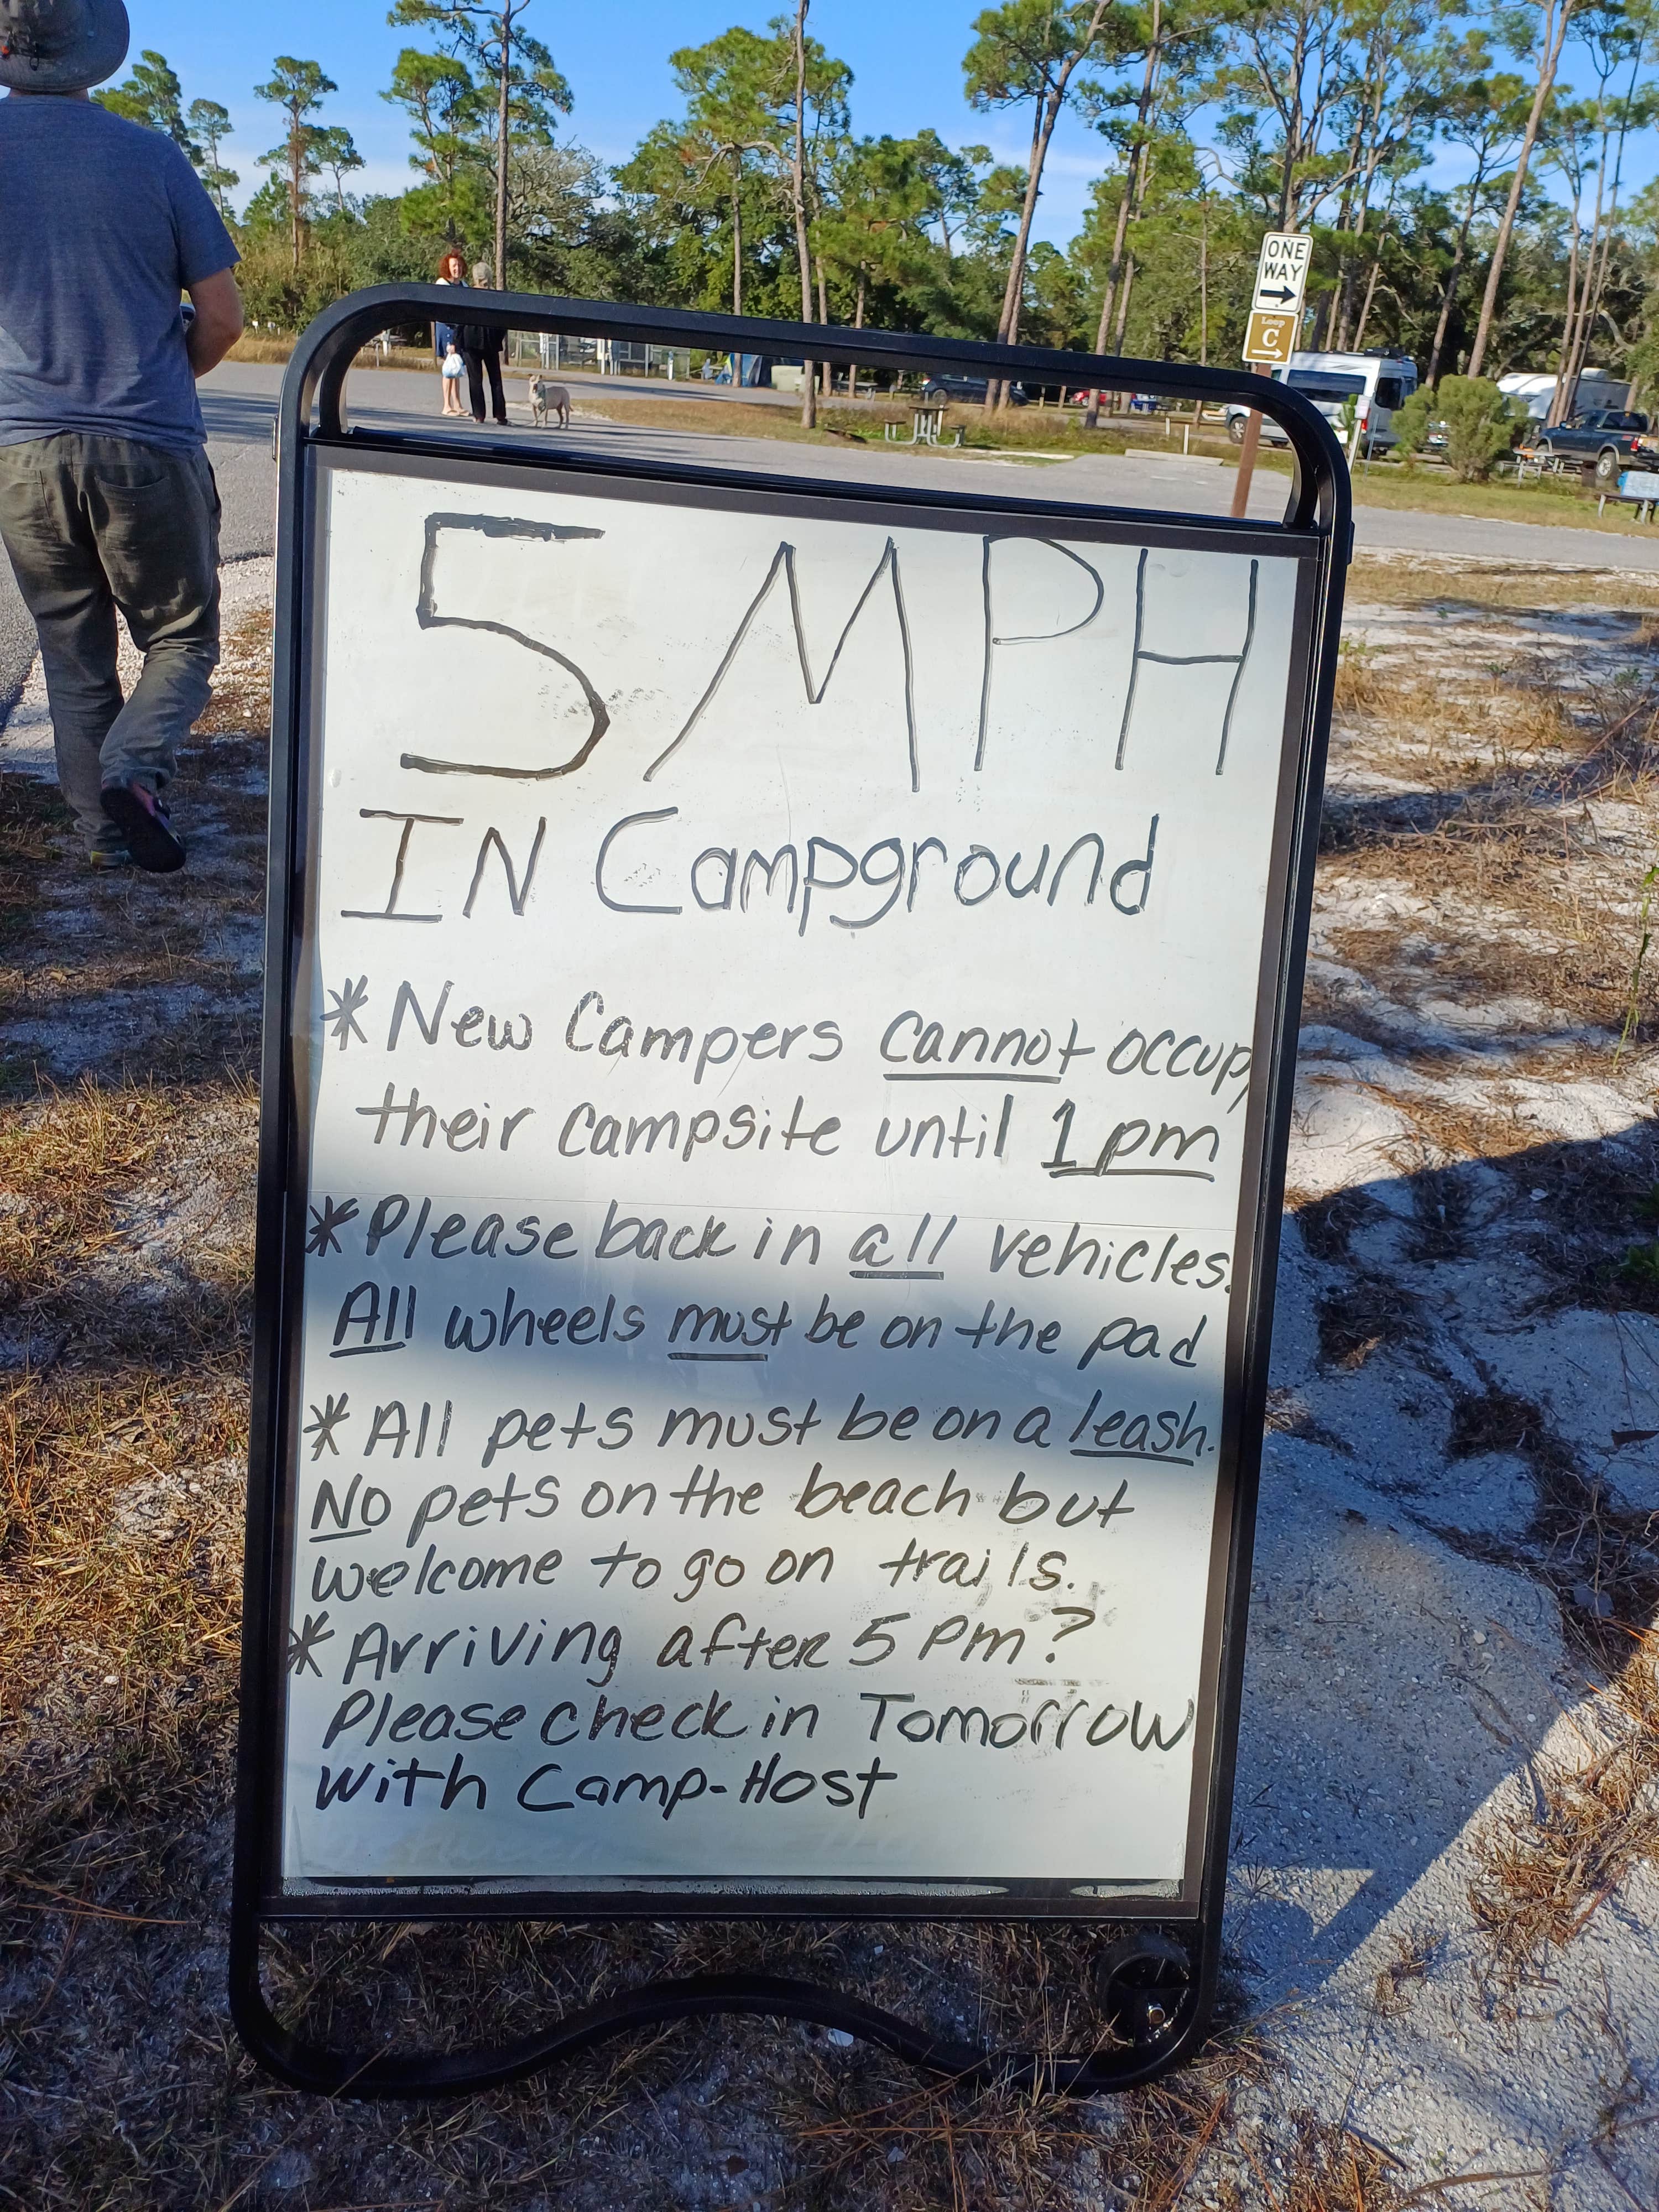 ONE
WAY
Loop
C
5 MPH
IN Campground
* New Campers cannot occupy
their campsite until 1 pm
* Please back in all vehicles.
All wheels must be on the pad
* All pets must be on a leash.
No pets on the beach but
welcome to go on trails.
* Arriving after 5 Pm?
Please check in Tomorrow
with Camp-Host